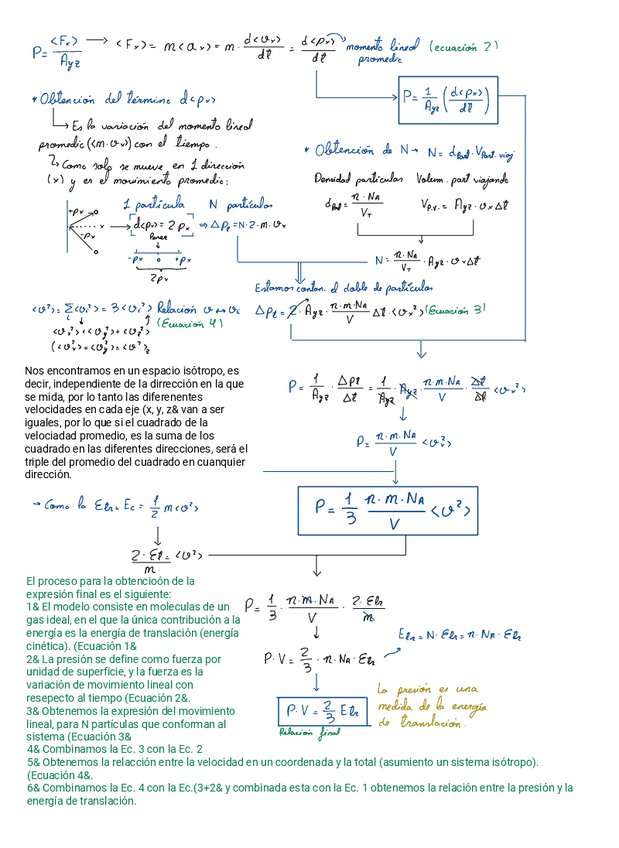 P = <Fx> / Ayz → <Fx> = m<ax> = m · d<vx>/dt = d<px>/dt momento lineal promedio (ecuación 2)
P = 1/Ayz (d<px>/dt)
* Obtención del término d<px>
↳ Es la variación del momento lineal
promedio (<m·vx>) con el tiempo.
↳ Como solo se mueve en 1 dirección
(x) y es el movimiento promedio:
1 partícula N partículas
+px
-px
x
d<px> = 2px ⇒ Δpt = N·2·m·vx
-px 0 +px
2px
* Obtención de N → N = dpart · Vpart. viaj
Densidad partículas Volum. part viajando
dpart = n·NA / VT Vp.v. = Ayz · vx Δt
N = n·NA / VT · Ayz · vx Δt
Estamos contan. el doble de partículas
Δpt = 2 · Ayz · n·m·NA / V Δt · <vx²> (Ecuación 3)
<v²> = Σ<vi²> = 3<vi²> Relación v ↔ vi
(Ecuación 4)
<vx²> + <vy²> + <vz²>
(<vx²> = <vy²> = <vz²>)
Nos encontramos en un espacio isótropo, es
decir, independiente de la dirrección en la que
se mida, por lo tanto las diferenentes
velocidades en cada eje (x, y, z& van a ser
iguales, por lo que si el cuadrado de la
velociadad promedio, es la suma de los
cuadrado en las diferentes direcciones, será el
triple del promedio del cuadrado en cuanquier
dirección.
P = 1/Ayz · Δpt/Δt = 1/Ayz · Ayz · n·m·NA / V · Δt/Δt <vx²>
P = n·m·NA / V <vx²>
P = 1/3 n·m·NA / V <v²>
→ Como la Etr = Ec = 1/2 m<v²>
2·Et / m = <v²>
P = 1/3 · n·m·NA / V · 2·Etr / m
P·V = 2/3 · n·NA · Etr
Etr = N·Etr = n·NA·Etr
P·V = 2/3 Etr
Relación final
La presión es una
medida de la energía
de translación.
El proceso para la obtencióón de la
expresión final es el siguiente:
1& El modelo consiste en moleculas de un
gas ideal, en el que la única contribución a la
energía es la energía de translación (energía
cinética). (Ecuación 1&
2& La presión se define como fuerza por
unidad de superficie, y la fuerza es la
variación de movimiento lineal con
resepecto al tiempo (Ecuación 2&.
3& Obtenemos la expresión del movimiento
lineal, para N partículas que conforman al
sistema (Ecuación 3&
4& Combinamos la Ec. 3 con la Ec. 2
5& Obtenemos la relacción entre la velocidad en un coordenada y la total (asumiento un sistema isótropo).
(Ecuación 4&.
6& Combinamos la Ec. 4 con la Ec.(3+2& y combinada esta con la Ec. 1 obtenemos la relación entre la presión y la
energía de translación.